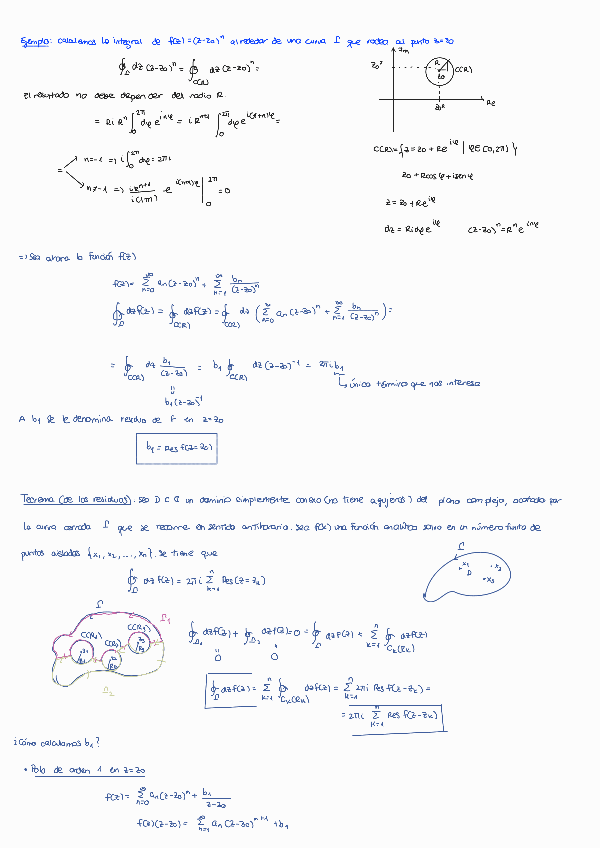 Ejemplo: calculemos la integral de f(z) = (z-z₀)ⁿ alrededor de una curva Γ que rodea al punto z=z₀
∮_Γ dz (z-z₀)ⁿ = ∮_C(R) dz (z-z₀)ⁿ =
El resultado no debe depender del radio R.
= R i Rⁿ ∫₀^2π dφ e^iφ e^inφ = i R^n+1 ∫₀^2π dφ e^i(1+n)φ =
= n=-1 => i ∫₀^2π dφ = 2πi
n≠-1 => iR^n+1 / i(1+n) e^i(n+1)φ |₀^2π = 0
Im
z₀ʸ
R
z₀
C(R)
z₀ˣ
Re
C(R) = {z = z₀ + Re^iφ | φ∈[0,2π)}
z₀ + Rcosφ + isenφ
z = z₀ + Re^iφ
dz = Ridφe^iφ (z-z₀)ⁿ = Rⁿe^inφ
=> Sea ahora la función f(z)
f(z) = Σ_n=0^∞ aₙ(z-z₀)ⁿ + Σ_n=1^∞ bₙ/(z-z₀)ⁿ
∮_Γ dz f(z) = ∮_C(R) dz f(z) = ∮_C(R) dz (Σ_n=0^∞ aₙ(z-z₀)ⁿ + Σ_n=1^∞ bₙ/(z-z₀)ⁿ) =
= ∮_C(R) dz b₁/(z-z₀) = b₁ ∮_C(R) dz (z-z₀)⁻¹ = 2πi b₁
= b₁(z-z₀)⁻¹
↳ único término que nos interesa
A b₁ se le denomina residuo de f en z=z₀
b₁ = Res f(z=z₀)
Teorema (de los residuos). Sea D⊂ℂ un dominio simplemente conexo (no tiene agujeros) del plano complejo, acotado por
la curva cerrada Γ que se recorre en sentido antihorario. Sea f(x) una función analítica salvo en un número finito de
puntos aislados {x₁, x₂, ..., xₙ}. Se tiene que
∮_Γ dz f(z) = 2πi Σ_k=1^n Res(z=z_k)
Γ
x₁
D
x₂
x₃
Γ
Γ₁
C(R₁)
C(R₂)
C(R₃)
Γ₂
∮_Γ₁ dz f(z) + ∮_Γ₂ dz f(z) = 0 = ∮_Γ dz f(z) + Σ_k=1^n ∮_C_k(R_k) dz f(z)
0 0
∮_Γ dz f(z) = Σ_k=1^n ∮_C_k(R_k) dz f(z) = Σ_k=1^n 2πi Res f(z=z_k) =
= 2πi Σ_k=1^n Res f(z=z_k)
¿Cómo calculamos b₁?
• Polo de orden 1 en z=z₀
f(z) = Σ_n=0^∞ aₙ(z-z₀)ⁿ + b₁/z-z₀
f(z)(z-z₀) = Σ_n=1^∞ aₙ(z-z₀)^n+1 + b₁